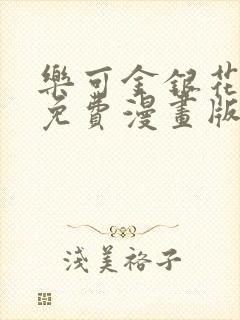 樂可金銀花
免費漫畫版
淺美裕子